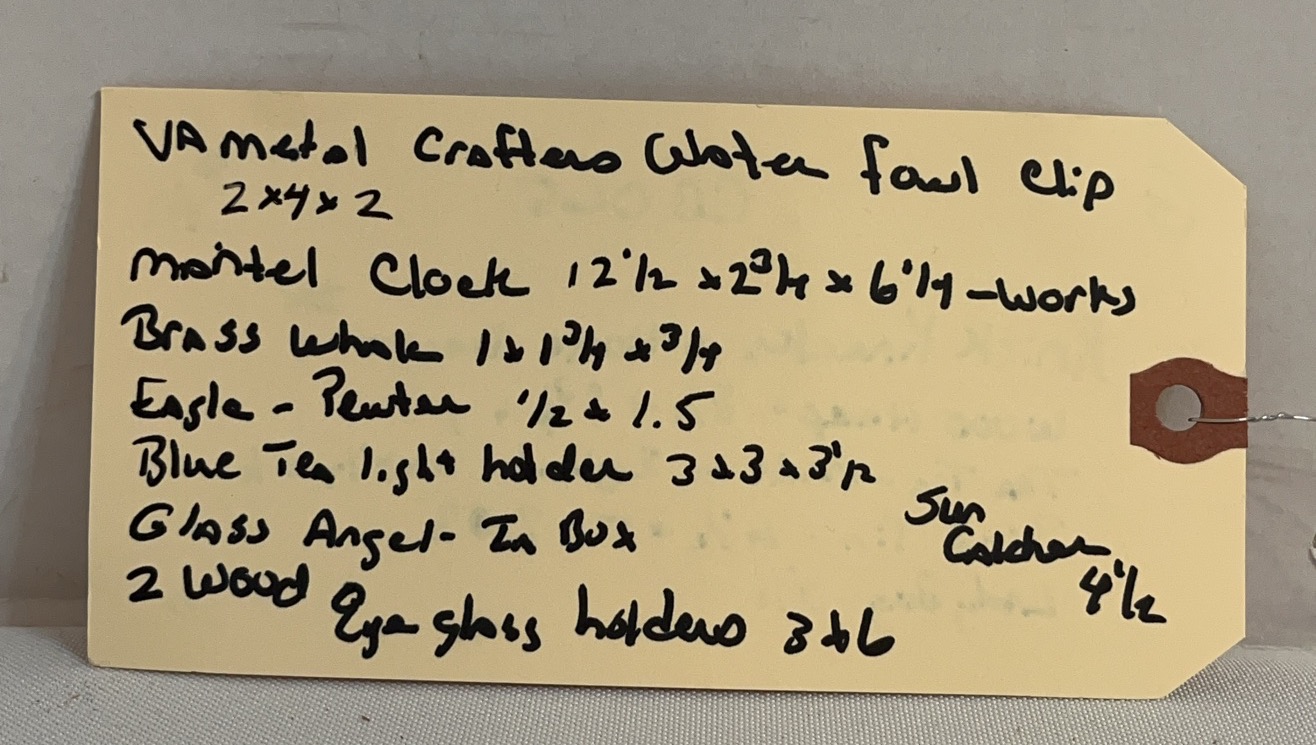 VA Metal Crafters Water fowl Clip
2x4x2
Mantel Clock 12 1/2 x 2 3/4 x 6 1/4 - works
Brass Whale 1 x 1 3/4 x 3/4
Eagle - Pewter 1/2 x 1.5
Blue Tea light holder 3 x 3 x 3 1/2
Glass Angel - In Box
Sun Catcher 4 1/2
2 Wood Eye glass holders 3 x 6